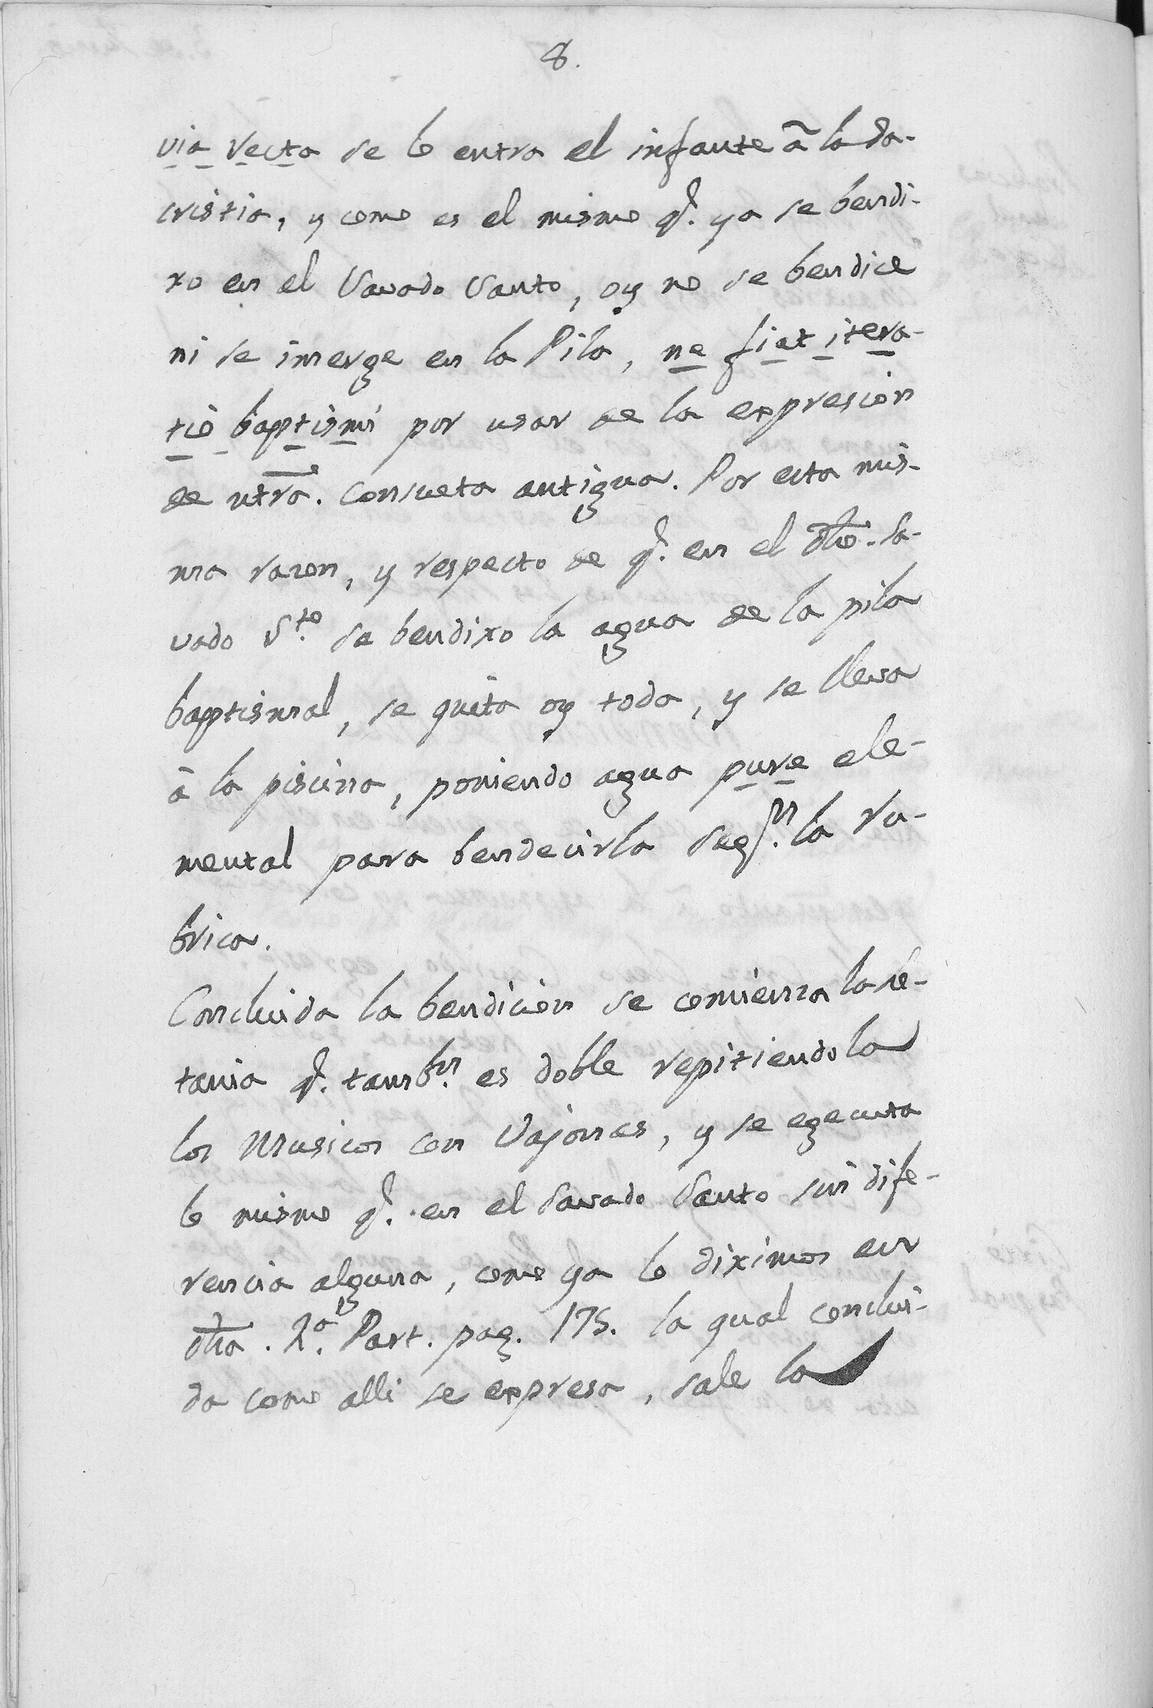 8.
via recta se lo entra el infante â la Sa-
cristia, y como es el mismo q.e ya se bendi-
xo en el Savado Santo, oy no se bendice
ni se imerge en la Pila, ne fiat itera-
tio baptismi por usar de la expresion
de ntra. Consueta antigua. Por esta mis-
ma razon, y respecto de q.e en el dho. Sa-
vado S.to se bendixo la agua de la pila
baptismal, se quita oy toda, y se lleva
â la piscina, poniendo agua pure ele-
mental para bendecirla seg.n la ru-
brica.
Concluida la bendicion se comienza la le-
tania q.e tamb.n es doble repitiendola
los Musicos con Vajones, y se egecuta
lo mismo q.e en el Savado Santo sin dife-
rencia alguna, como ya lo diximos en
dha. 2.a Part. pag. 175. la qual conclui-
da como alli se expresa, sale la